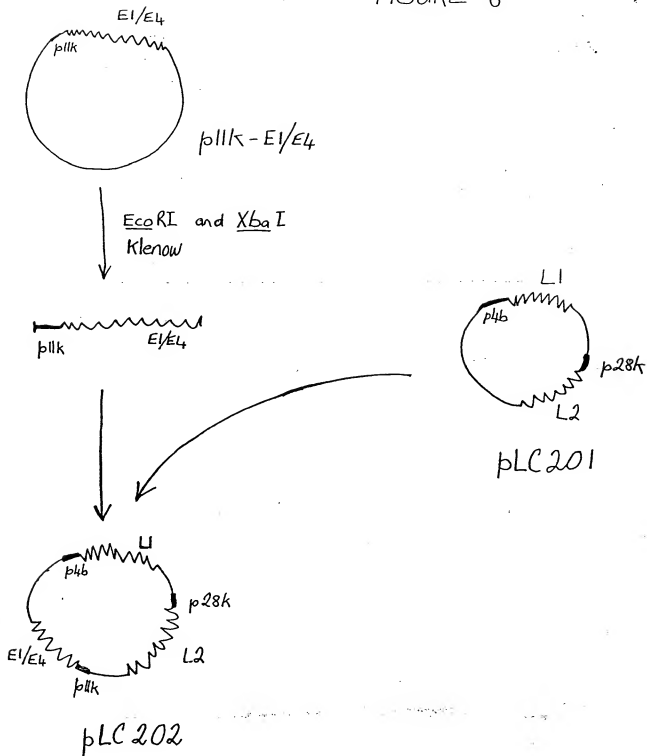 E1/E4
p11k
p11k-E1/E4
EcoRI and XbaI
Klenow
p11k
E1/E4
L1
p4b
p28k
L2
pLC201
L1
p4b
p28k
E1/E4
L2
p11k
pLC202